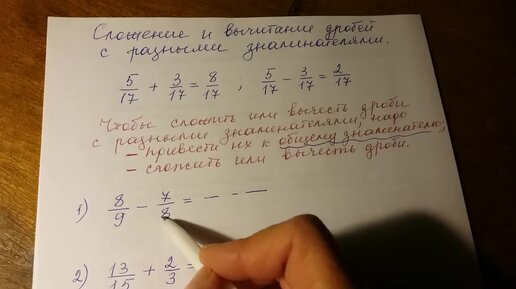 Сложение и вычитание дробей
с разными знаменателями.
5/17 + 3/17 = 8/17 ; 5/17 - 3/17 = 2/17
Чтобы сложить или вычесть дроби
с разными знаменателями, надо
- привести их к общему знаменателю;
- сложить или вычесть дроби.
1) 8/9 - 7/8 = — - —
2) 13/15 + 2/3 =